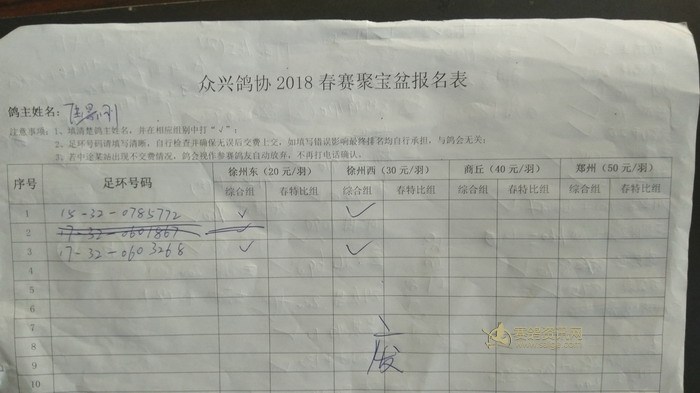 众兴鸽协 2018 春赛聚宝盆报名表
鸽主姓名：
注意事项：1、填清楚鸽主姓名，并在相应组别中打“√”；
2、足环号码请填写清晰，自行检查并确保无误后交费上交，如填写错误影响最终排名均自行承担，与鸽会无关；
3、若中途某站出现不交费情况，鸽会视作参赛鸽友自动放弃，不再打电话确认。
序号 足环号码 徐州东（20 元/羽） 徐州西（30 元/羽） 商丘（40 元/羽） 郑州（50 元/羽）
综合组 春特比组 综合组 春特比组 综合组 春特比组 综合组 春特比组
1 15-32-0785772 √ √
2 17-32-0601867 √
3 17-32-0603268 √ √
4
5
6
7
8
9
10